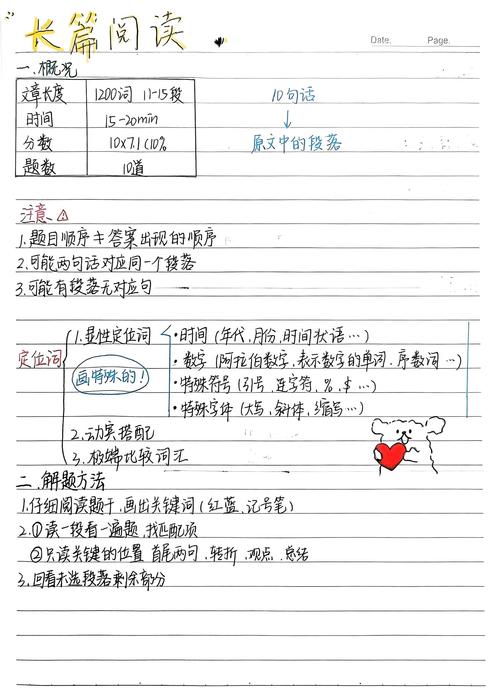 长篇阅读
Date. Page.
一.概况
文章长度 1200词 11-15段
时间 15-20min
分数 10×7.1(10%
题数 10道
10句话
↓
原文中的段落
注意.⚠
1.题目顺序≠答案出现的顺序
2.可能两句话对应同一个段落
3.可能有段落无对应句
定位词
1.显性定位词
画特殊的!
·时间(年代,月份,时间状语…)
·数字(阿拉伯数字,表示数字的单词.序数词…)
·特殊符号(引号,连字符,%,$…)
·特殊字体(大写,斜体,缩写…)
2.动宾搭配
3.极端比较词汇
二.解题方法
1.仔细阅读题干,画出关键词(红蓝.记号笔)
2.①读一段看一遍题,找匹配项
②只读关键的位置 首尾两句.转折.观点.总结
3.回看未选段落剩余部分